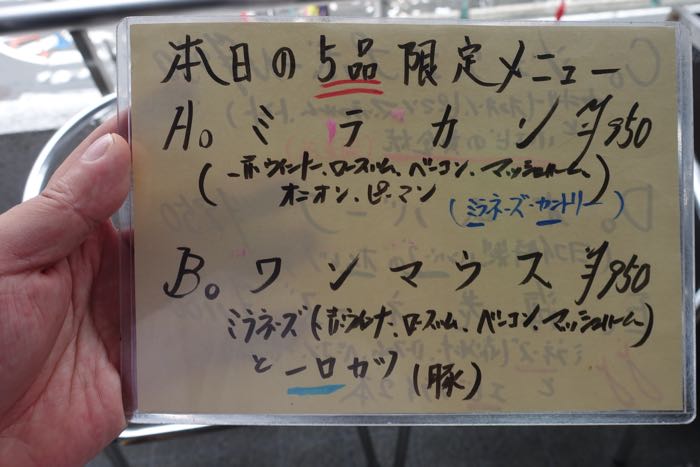 本日の5品限定メニュー
A。ミラカン ¥950
(赤ウインナー、ロースハム、ベーコン、マッシュルーム、
オニオン、ピーマン)
(ミラネーズ・カントリー)
B。ワンマウス ¥950
ミラネーズ(赤ウインナ、ロースハム、ベーコン、マッシュルーム)
と一口カツ(豚)